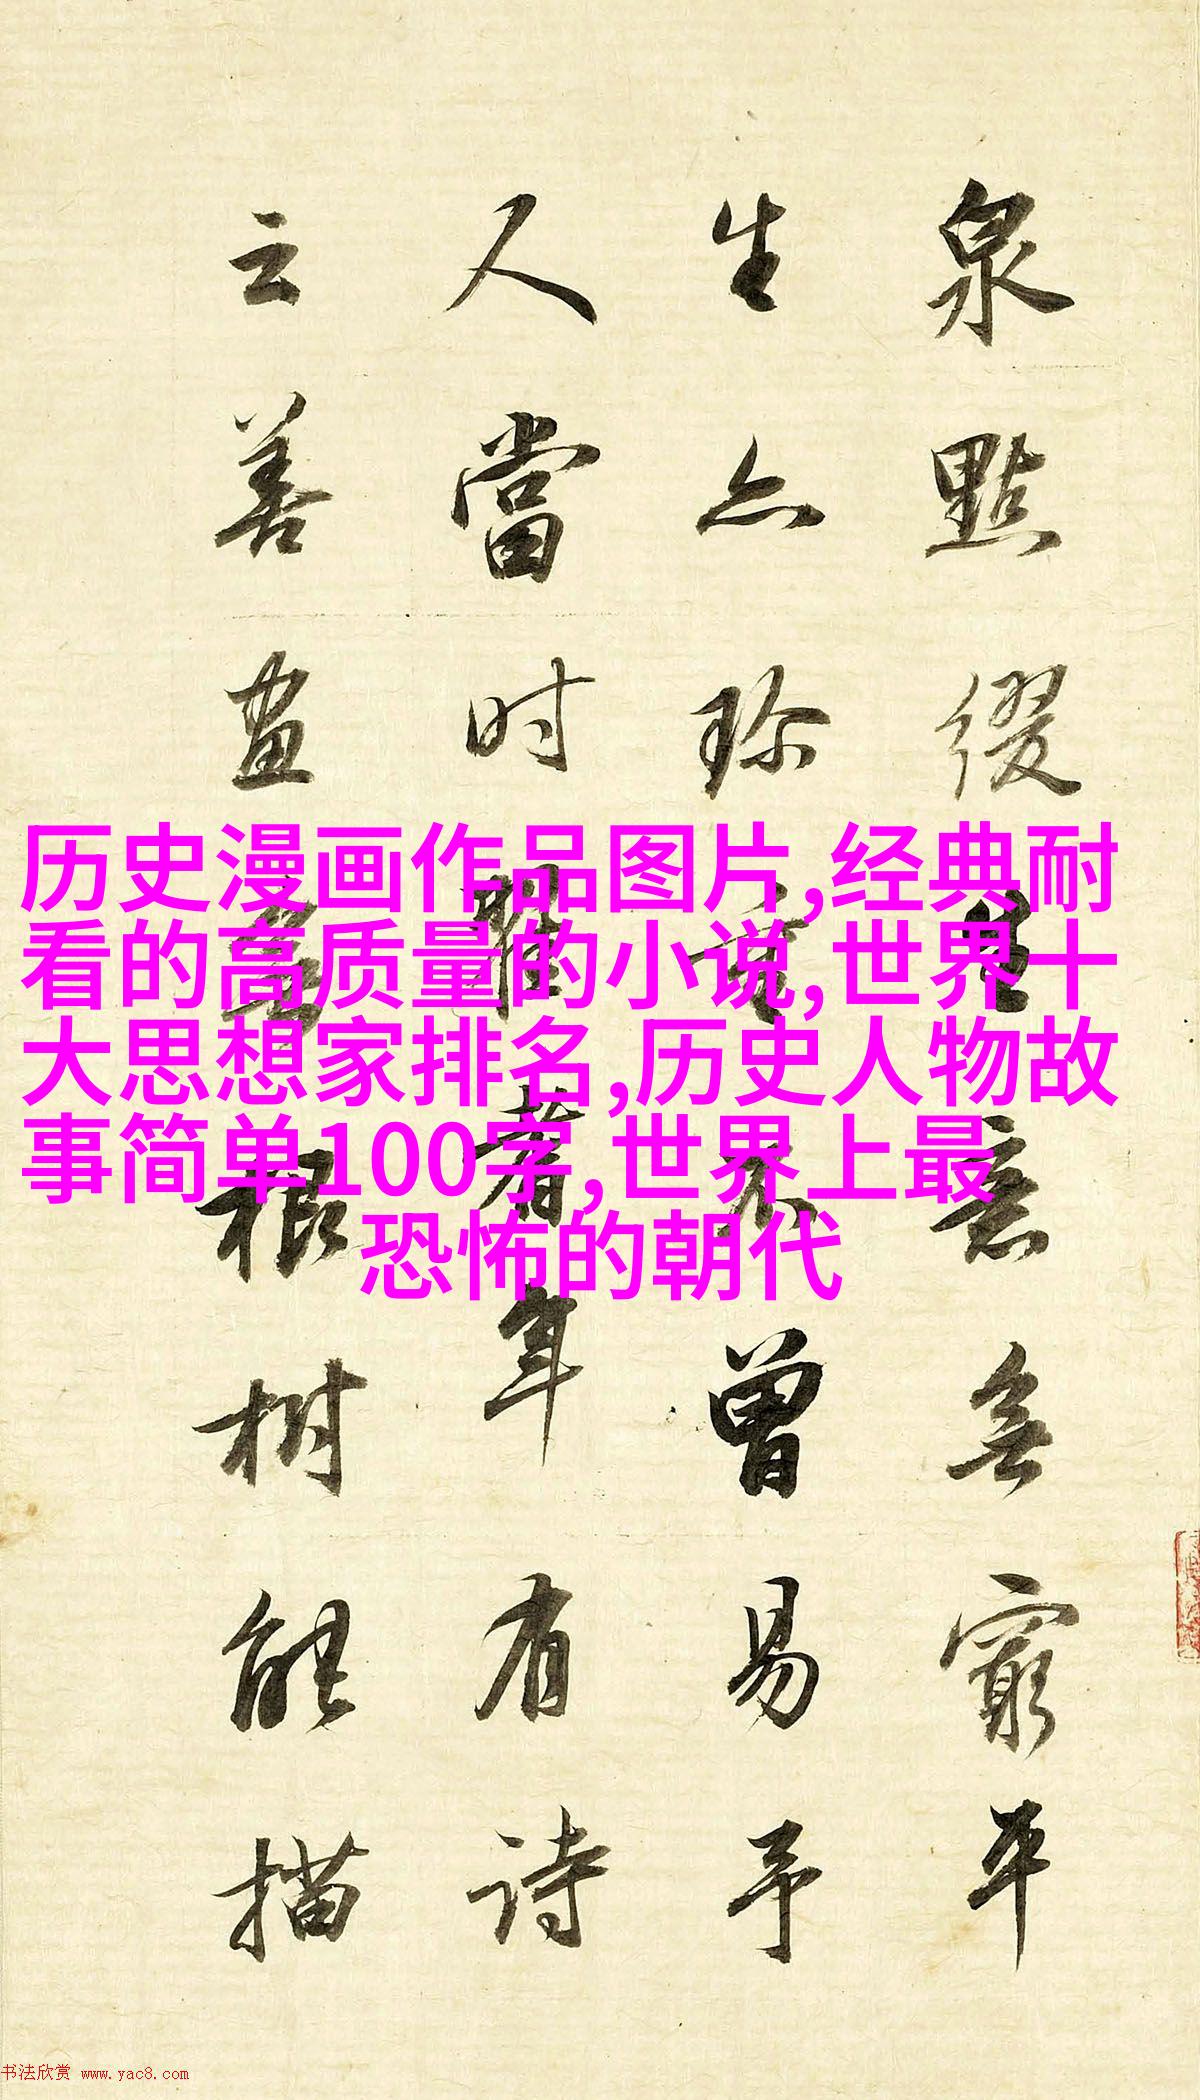 泉點缀意無窮平
生亦珍重不曾易予
人當时著年有诗
云善画無根树能描
历史漫画作品图片,经典耐
看的高质量的小说,世界十
大思想家排名,历史人物故
事简单100字,世界上最
恐怖的朝代
书法欣赏 www.yac8.com